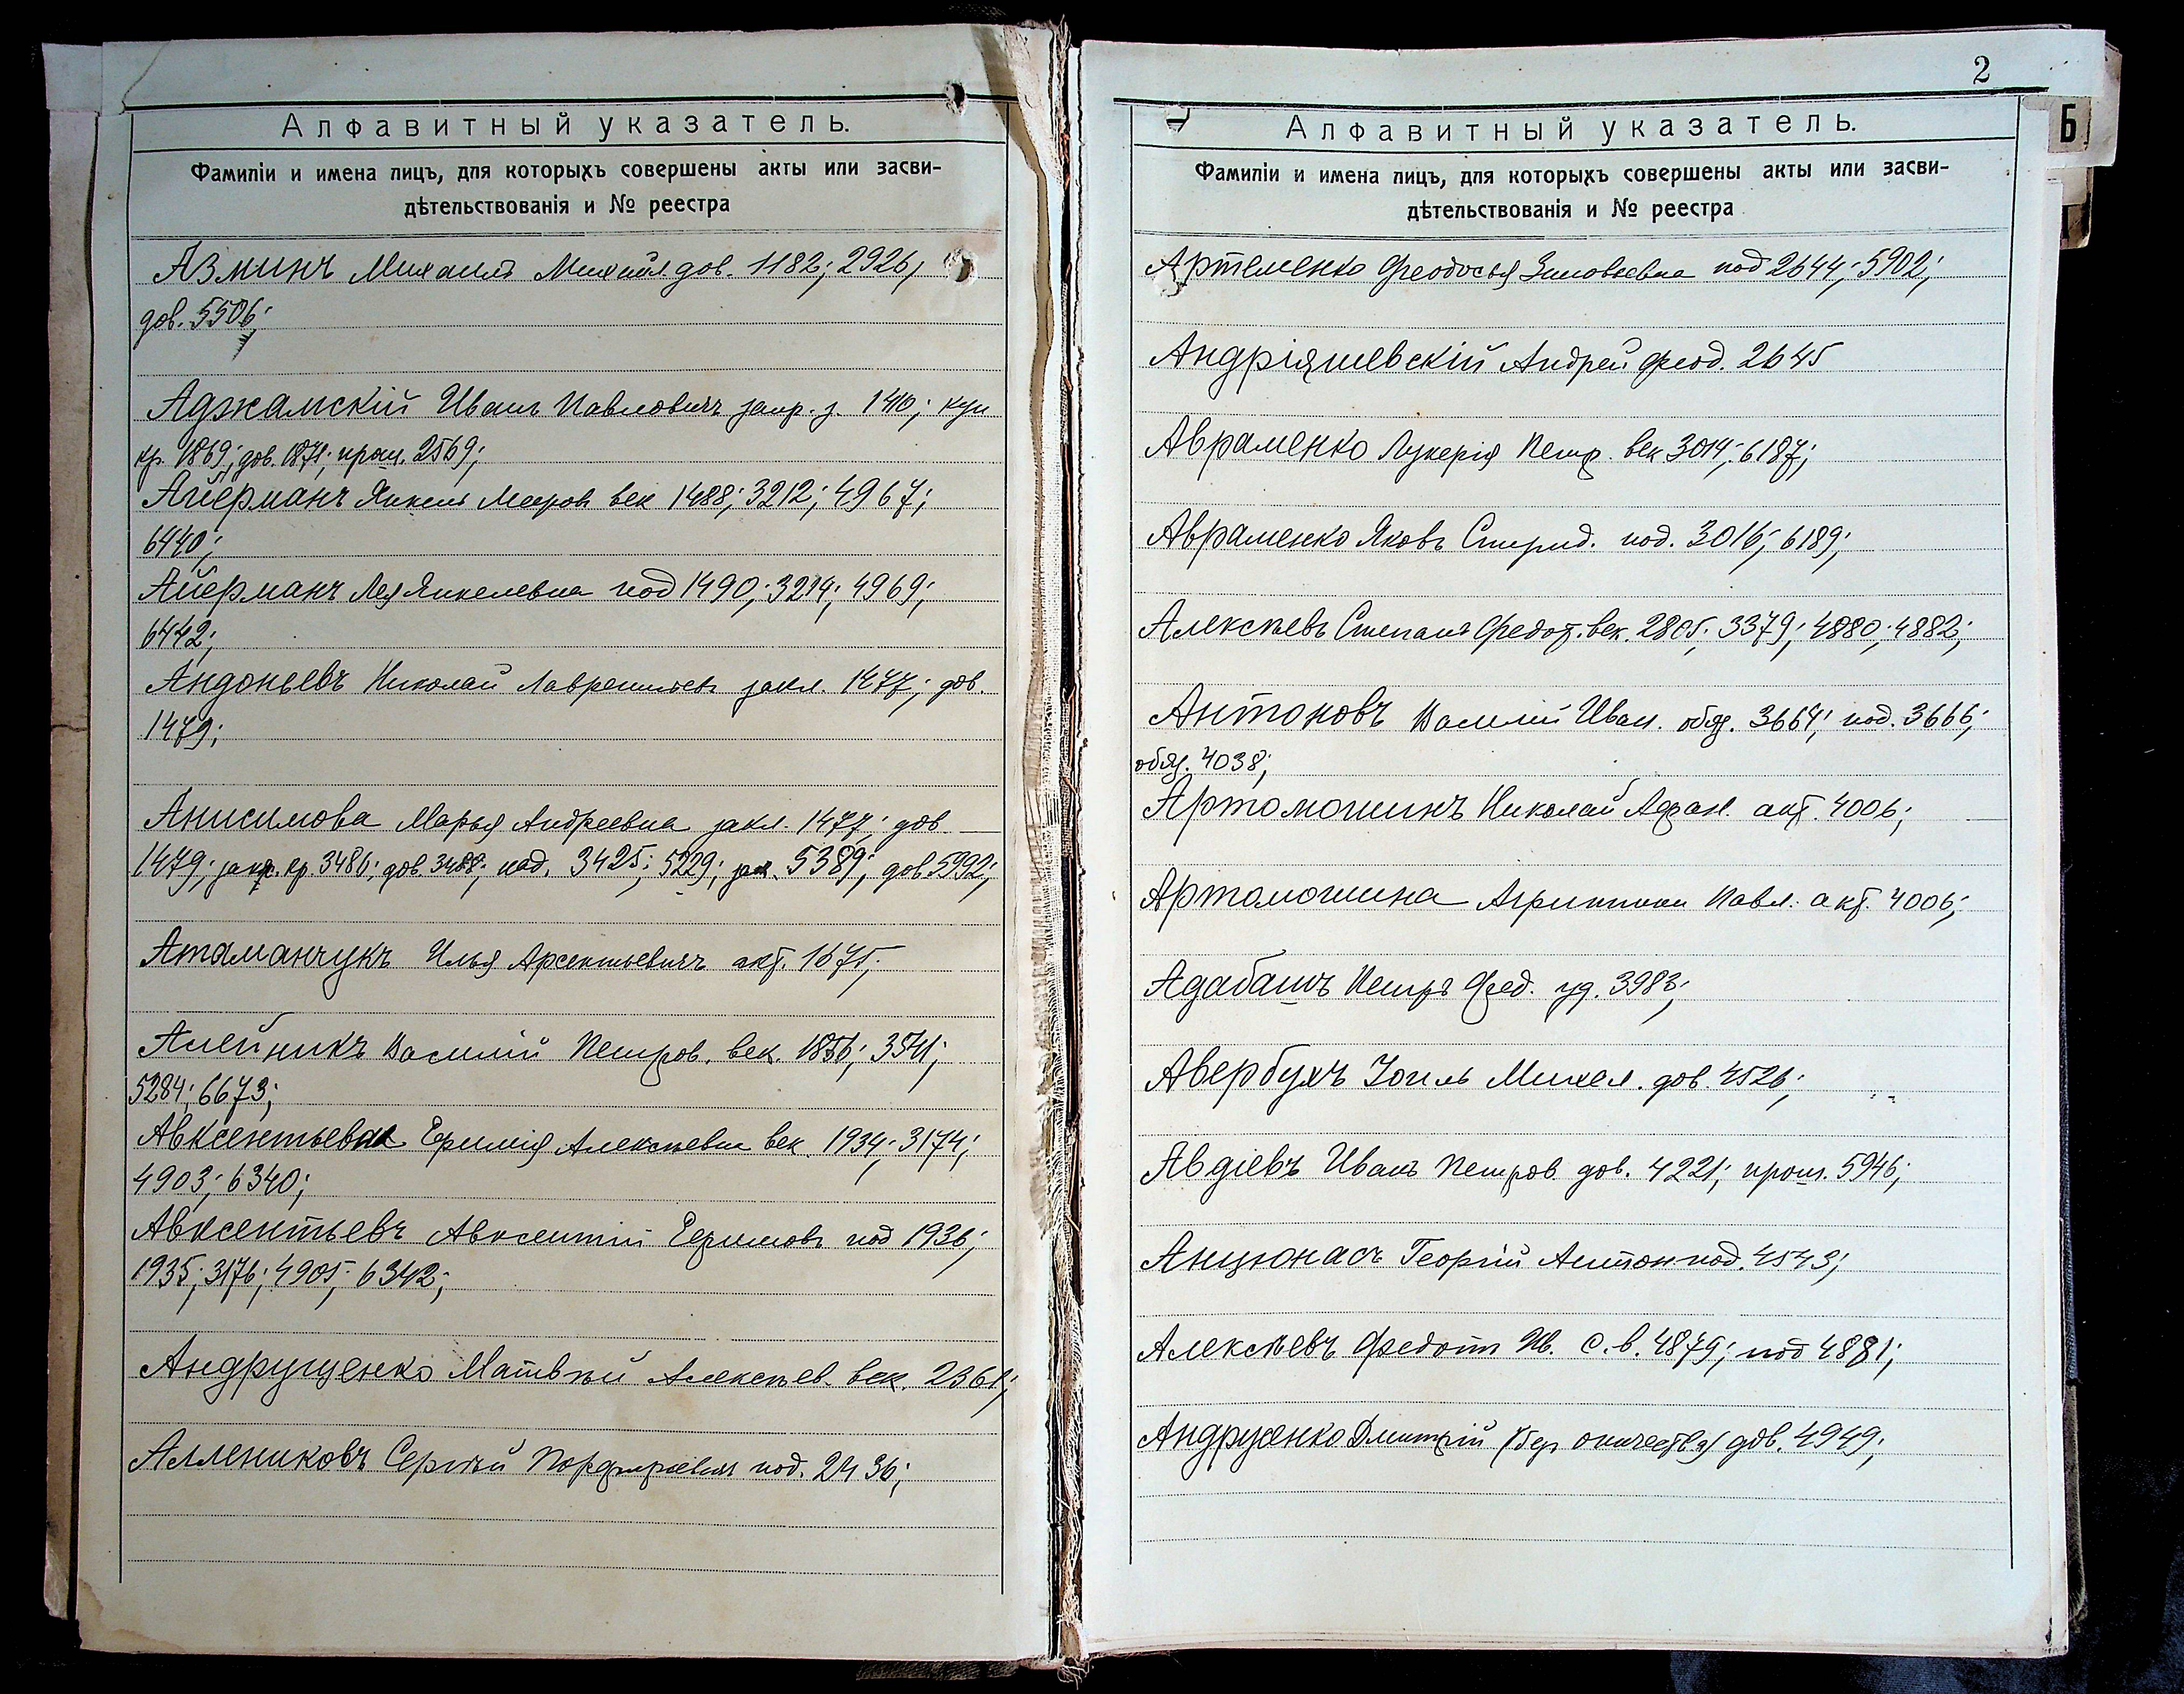 Алфавитный указатель.
Фамиліи и имена лицъ, для которыхъ совершены акты или засви-
дѣтельствованія и № реестра
Азминъ Михаилъ Михайл. дов. 1182; 2926;
дов. 5506;
Аджамскій Иванъ Павловичъ запр. з. 140; куп
кр. 1869; дов. 1871; прот. 2569;
Айерманъ Янкель Мееров век 1488; 3212; 4967;
6440;
Айерманъ Лея Янкелевна под 1490; 3214; 4969;
6442;
Андоньевъ Николай Лаврентьев закл. 1477; дов.
1479;
Анисимова Марья Андреевна закл. 1477; дов.
1479; закл. кр. 3486; дов. 3488; под. 3425; 5229; зак. 5389; дов 5992;
Атаманчукъ Илья Арсентьевичъ акт. 1675;
Алейникъ Василій Петров. век. 1856; 3541;
5284; 6673;
Авксентьева Ефимія Алексѣевна век. 1934; 3174;
4903; 6340;
Авксентьевъ Авксентій Ефимовъ под 1936;
1935; 3176; 4905; 6342;
Андрущенко Матвѣй Алексѣев. век. 2361;
Аллениковъ Сергѣй Порфирьевич под. 2436;
2
Б
Алфавитный указатель.
Фамиліи и имена лицъ, для которыхъ совершены акты или засви-
дѣтельствованія и № реестра
Артеменко Феодосья Зиновьевна под 2644; 5902;
Андріяшевскій Андрей Феод. 2645
Авраменко Лукерія Петр. век 3014; 6187;
Авраменко Яковъ Спирид. под. 3016; 6189;
Алексѣевъ Степанъ Федот. век. 2805; 3379; 4880; 4882;
Антоновъ Василій Иван. обяз. 3664; под. 3666;
обяз. 4038;
Артомошинъ Николай Афан. акт. 4006;
Артомошина Агрипина Павл. акт. 4006;
Адабашъ Петръ Фед. уд. 3983;
Авербухъ Іоиль Михел. дов. 4526;
Авдіевъ Иванъ Петров. дов. 4221; прот. 5946;
Анцюнасъ Георгій Антон под. 4543;
Алексѣевъ Федотъ Ив. с. в. 4879; под 4881;
Андрусенко Дмитрій (без отчества) дов. 4949;